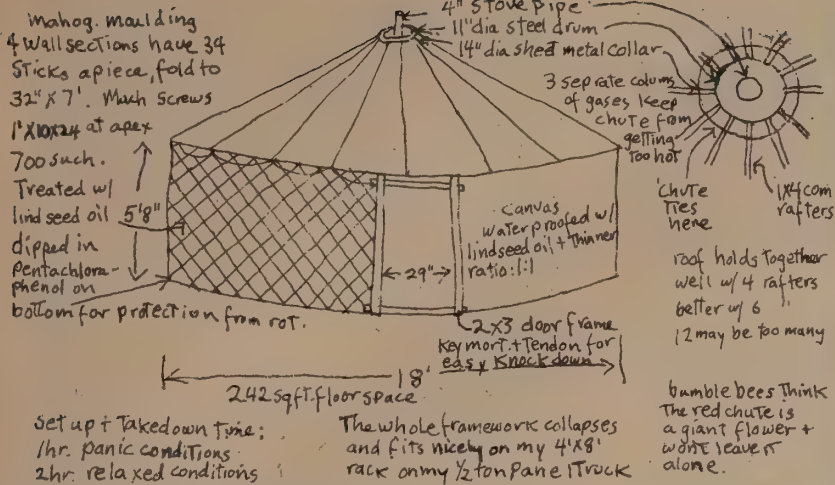 mahog. moulding
4 wall sections have 34
sticks apiece, fold to
32" X 7'. Mach Screws
1" X10X24 at apex
700 such.
Treated w/
lindseed oil
dipped in
Pentachlora-
phenol on
bottom for protection from rot.
5'8"
4" stove pipe
11" dia steel drum
14" dia shed metal collar
3 seprate colums
of gases keep
chute from
getting
too hot
'chute
Ties
here
1X4 com
rafters
canvas
waterproofed w/
lindseed oil + Thinner
ratio: 1:1
29"
2X3 door frame
Key mort. + Tendon for
easy Knockdown
18'
242 sq ft. floor space
roof holds together
well w/ 4 rafters
better w/ 6 "
12 may be too many
set up + Takedown Time:
1hr. panic conditions
2hr. relaxed conditions
The whole framework collapses
and fits nicely on my 4'X8'
rack on my 1/2 ton Panel Truck
bumble bees Think
The red chute is
a giant flower +
wont leave it
alone.